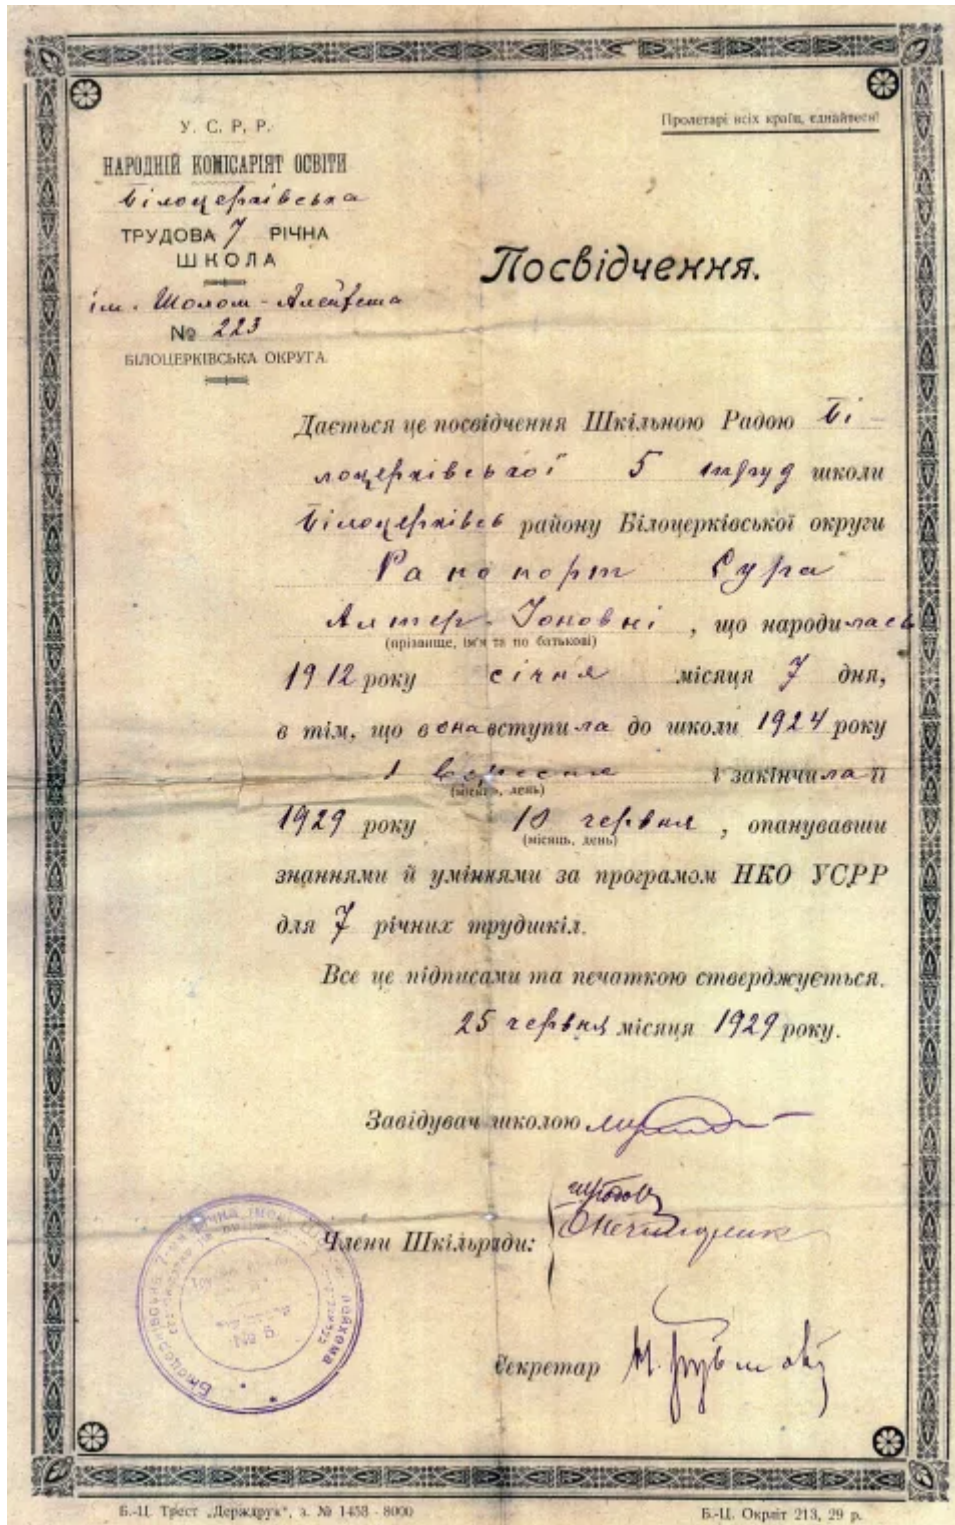 У. С. Р. Р.
НАРОДНІЙ КОМІСАРІЯТ ОСВІТИ
Білоцерківська
ТРУДОВА 7 РІЧНА
ШКОЛА
ім. Шолом-Алейхема
№ 223
БІЛОЦЕРКІВСЬКА ОКРУГА
Пролетарі всіх країн, єднайтеся!
Посвідчення.
Дається це посвідчення Шкільною Радою Бі-
лоцерківської 5 труд школи
Білоцерківсь району Білоцерківської округи
Рапопорт Сура
Алтер-Іоновні , що народилась
(прізвище, ім'я та по батькові)
1912 року січня місяця 7 дня,
в тім, що вона вступила до школи 1924 року
1 вересня і закінчила її
(місяць, день)
1929 року 10 червня , опанувавши
(місяць, день)
знаннями й уміннями за програмом НКО УСРР
для 7 річних трудшкіл.
Все це підписами та печаткою стверджується.
25 червня місяця 1929 року.
Завідувач школою
Члени Шкільради:
Секретар
№ 5
Б.-Ц. Трест „Держдрук", з. № 1453 - 8000
Б.-Ц. Окрліт 213, 29 р.